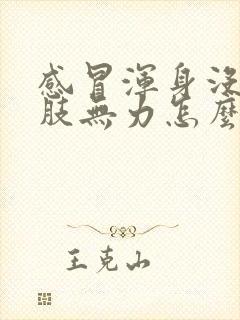 感冒渾身沒
肢無力怎麼
王克山